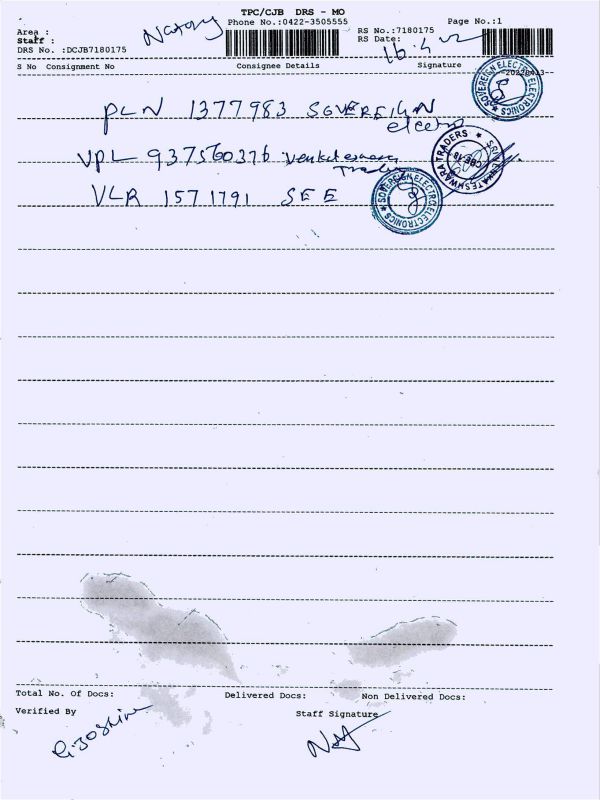 TPC/CJB DRS - MO
Phone No.:0422-3505555 Page No.:1
Area :
Staff :
RS No.:7180175
RS Date: 16.4.22
DRS No. :DCJB7180175
S No Consignment No Consignee Details Signature
SOVEREIGN ELECTRO ELECTRONICS
PLN 1377983 SOVEREIGN
electro
VPL 937560376 Venkateswara
Traders
SRI VENKATESHWARA TRADERS
CBE-18
VLR 1571791 SEE
SOVEREIGN ELECTRO ELECTRONICS
Total No. of Docs: Delivered Docs: Non Delivered Docs:
Verified By Staff Signature